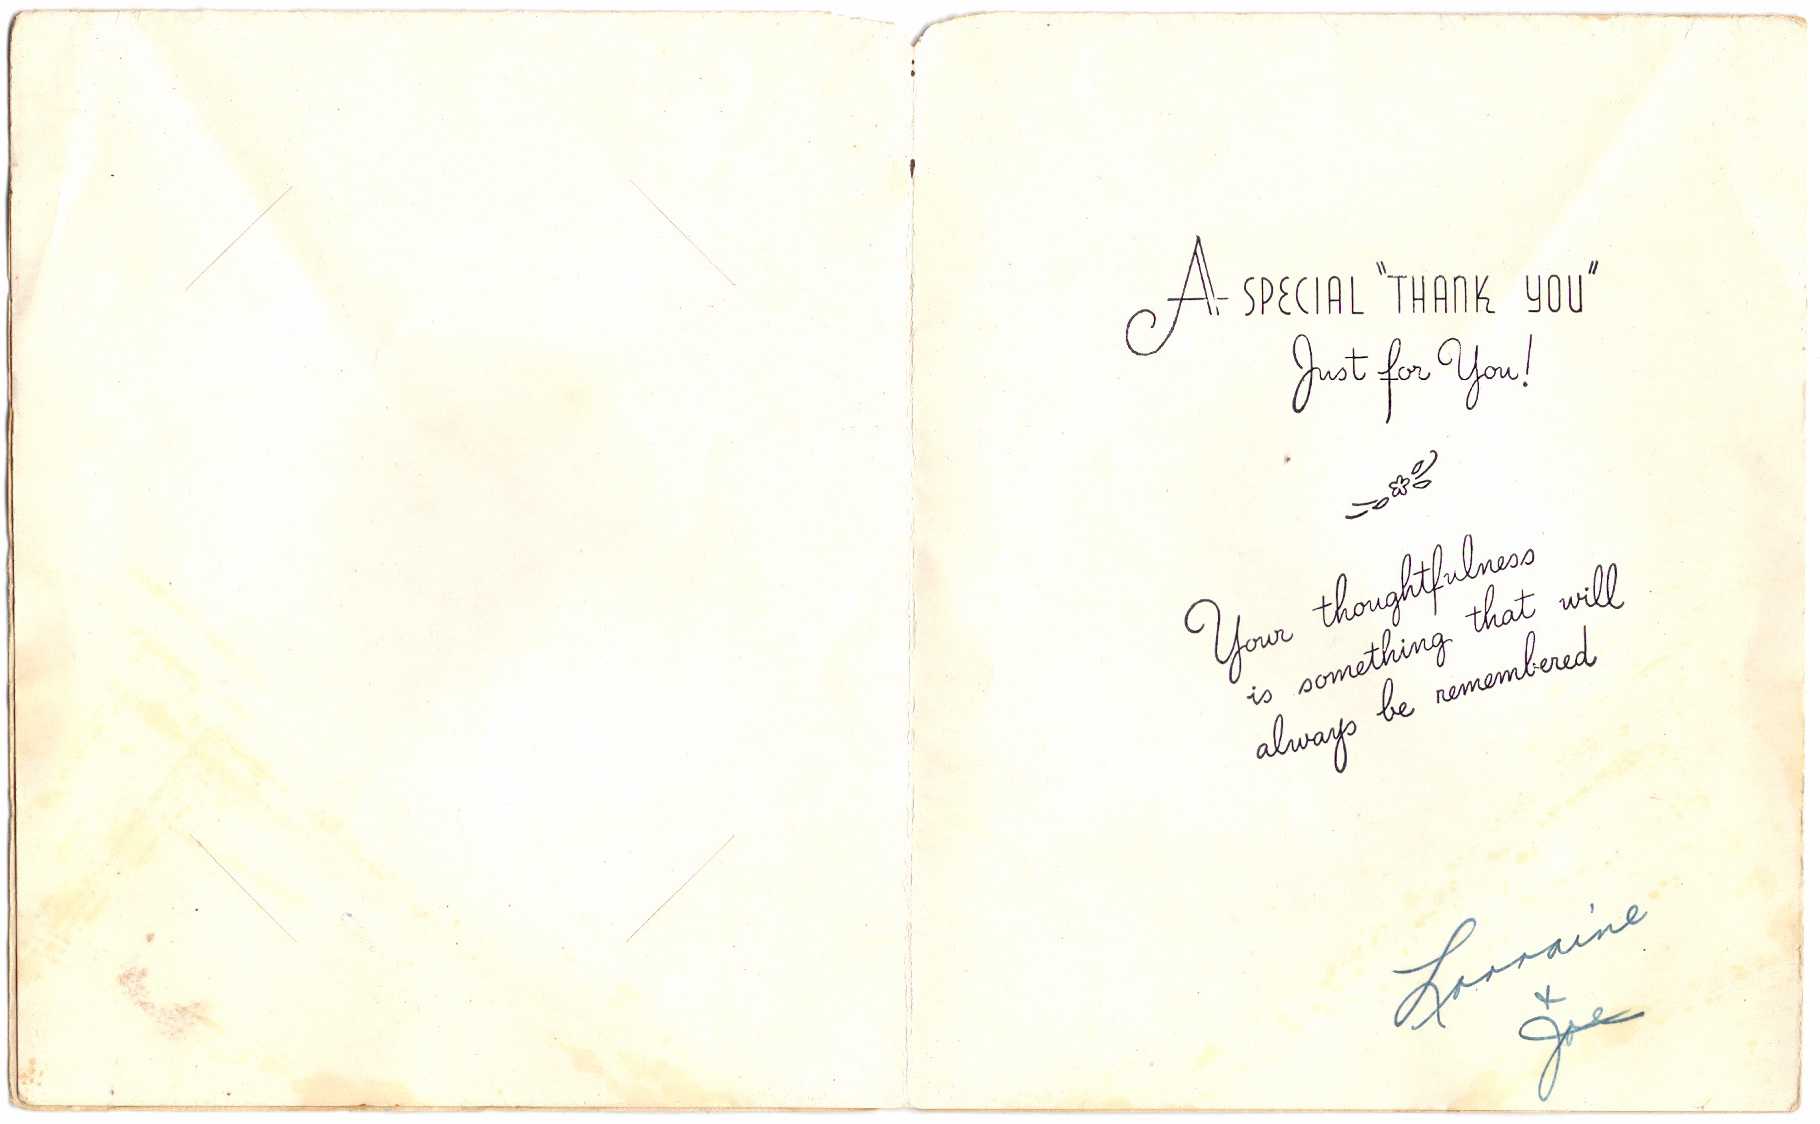 A SPECIAL "THANK YOU"
Just for You!
Your thoughtfulness
is something that will
always be remembered
Lorraine
+
Joe